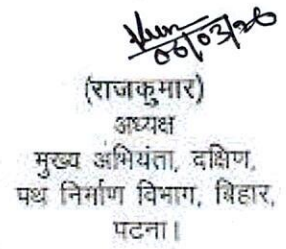 06/03/26
(राजकुमार)
अध्यक्ष
मुख्य अभियंता, दक्षिण,
पथ निर्माण विभाग, बिहार,
पटना।